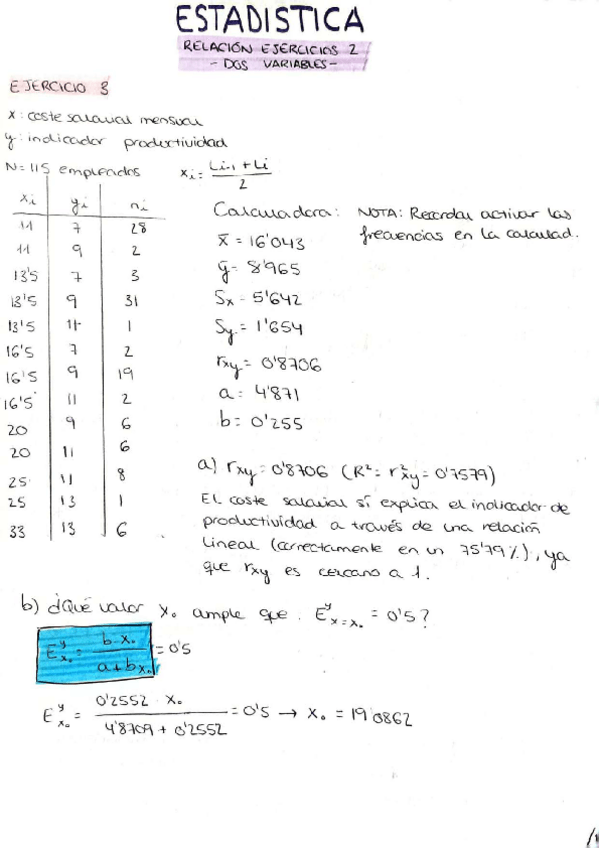 ESTADISTICA
RELACIÓN EJERCICIOS 2
- DOS VARIABLES -
EJERCICIO 3
x: coste salarial mensual
y: indicador productividad
N=115 empleados
xi = (Li-1 + Li) / 2
xi yi ni
11 7 28
11 9 2
13'5 7 3
13'5 9 31
13'5 11 1
16'5 7 2
16'5 9 19
16'5 11 2
20 9 6
20 11 6
25 11 8
25 13 1
33 13 6
Calculadora:
x̄ = 16'043
ȳ = 8'965
Sx = 5'642
Sy = 1'654
rxy = 0'8706
a = 4'871
b = 0'255
NOTA: Recordar activar las
frecuencias en la calculad.
a) rxy = 0'8706 (R² = r²xy = 0'7579)
El coste salarial sí explica el indicador de
productividad a través de una relación
lineal (correctamente en un 75'79%), ya
que rxy es cercano a 1.
b) ¿Qué valor x₀ cumple que E^y x=x₀ = 0'5?
E^y x₀ = b·x₀ / (a+bx₀) = 0'5
E^y x₀ = 0'2552 · x₀ / (4'8709 + 0'2552) = 0'5 → x₀ = 19'0862